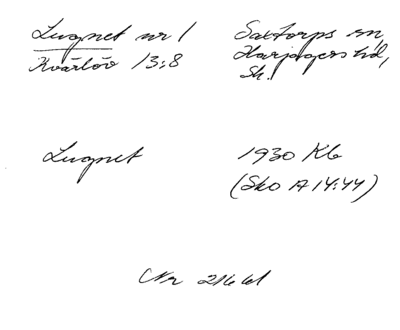 Lugnet nr 1
Kvärlöv 13:8
Saxtorps sn,
Harjagers hd,
Sk.
Lugnet
1930 Kb
(Sko A 14:44)
Nr